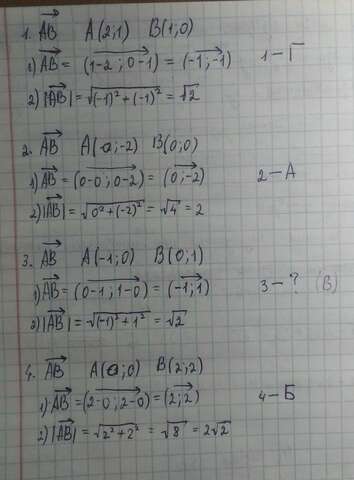 1. AB A(2;1) B(1;0)
1) AB = (1-2;0-1) = (-1;-1) 1 – Г
2) |AB| = √(-1)²+(-1)² = √2
2. AB A(0;-2) B(0;0)
1) AB = (0-0;0-2) = (0;-2) 2 – А
2) |AB| = √0²+(-2)² = √4 = 2
3. AB A(-1;0) B(0;1)
1) AB = (0-1;1-0) = (-1;1) 3 – ? (В)
2) |AB| = √(-1)²+1² = √2
4. AB A(0;0) B(2;2)
1) AB = (2-0;2-0) = (2;2) 4 – Б
2) |AB| = √2²+2² = √8 = 2√2